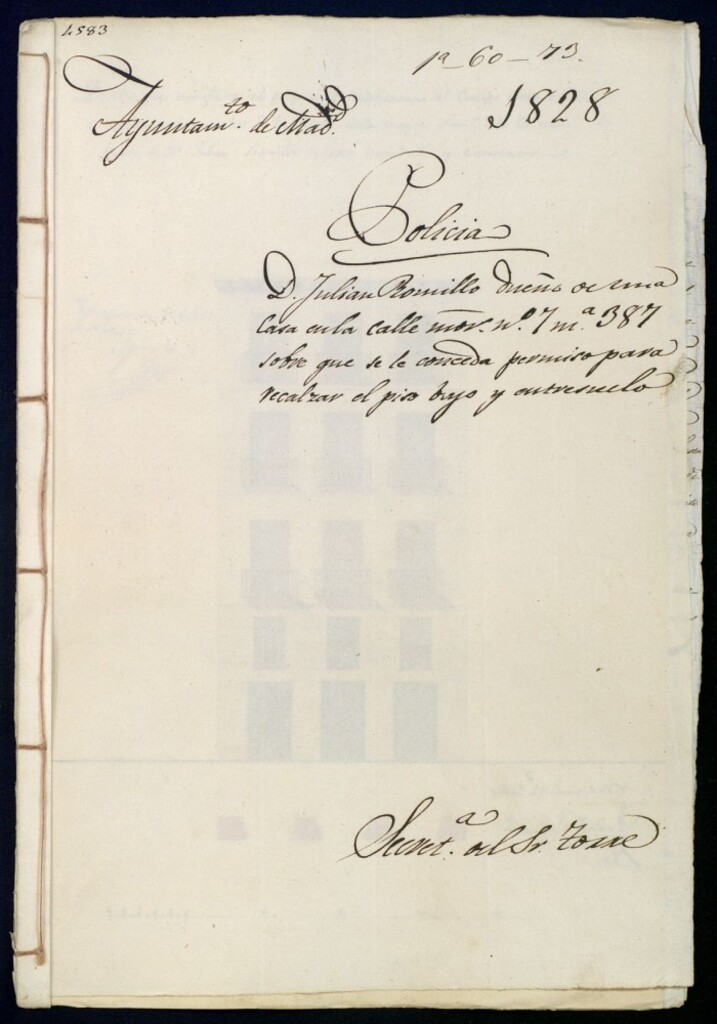 4583
1ª-60-73.
Ayuntam.to de Mad.d
1828
Policia
D. Julian Romillo dueño de una
casa en la calle mor. nº. 7 m.ª 387
sobre que se le conceda permiso para
recalzar el piso bajo y entresuelo
Secret.ª del Sr. Torre